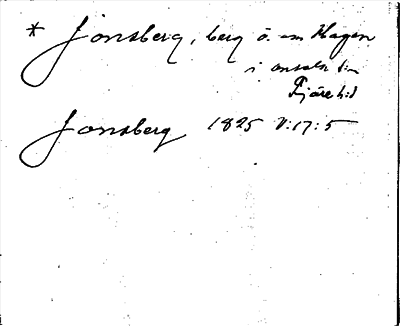 * Jonsberg, berg ö. om Hagen
i onsala sn
Fjäre hd
Jonsberg 1825 V:17:5